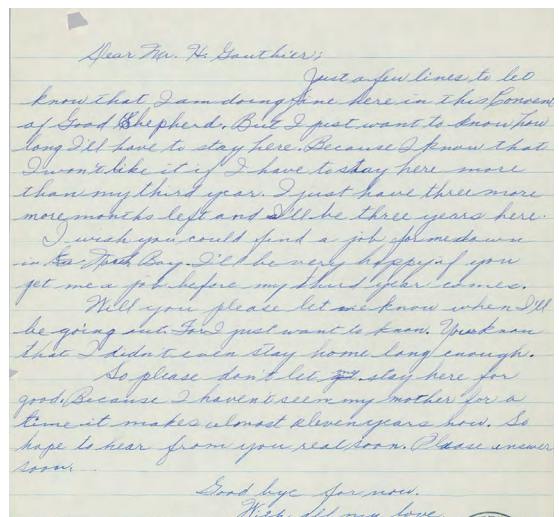 Dear Mr. H. Gauthier;
Just a few lines to let
know that I am doing fine here in this Conven
of Good Shepherd. But I just want to know how
long I'll have to stay here. Because I know that
I won't like it if I have to stay here more
than my third year. I just have three more
more months left and I'll be three years here.
I wish you could find a job for me down
in North Bay. I'll be very happy if you
get me a job before my third year comes.
Will you please let me know when I'll
be going out. For I just want to know. You know
that I didn't even stay home long enough.
So please don't let my stay here for
good. Because I haven't seen my mother for a
time it makes almost eleven years now. So
hope to hear from you real soon. Please answer
soon.
Good bye for now.
With all my love